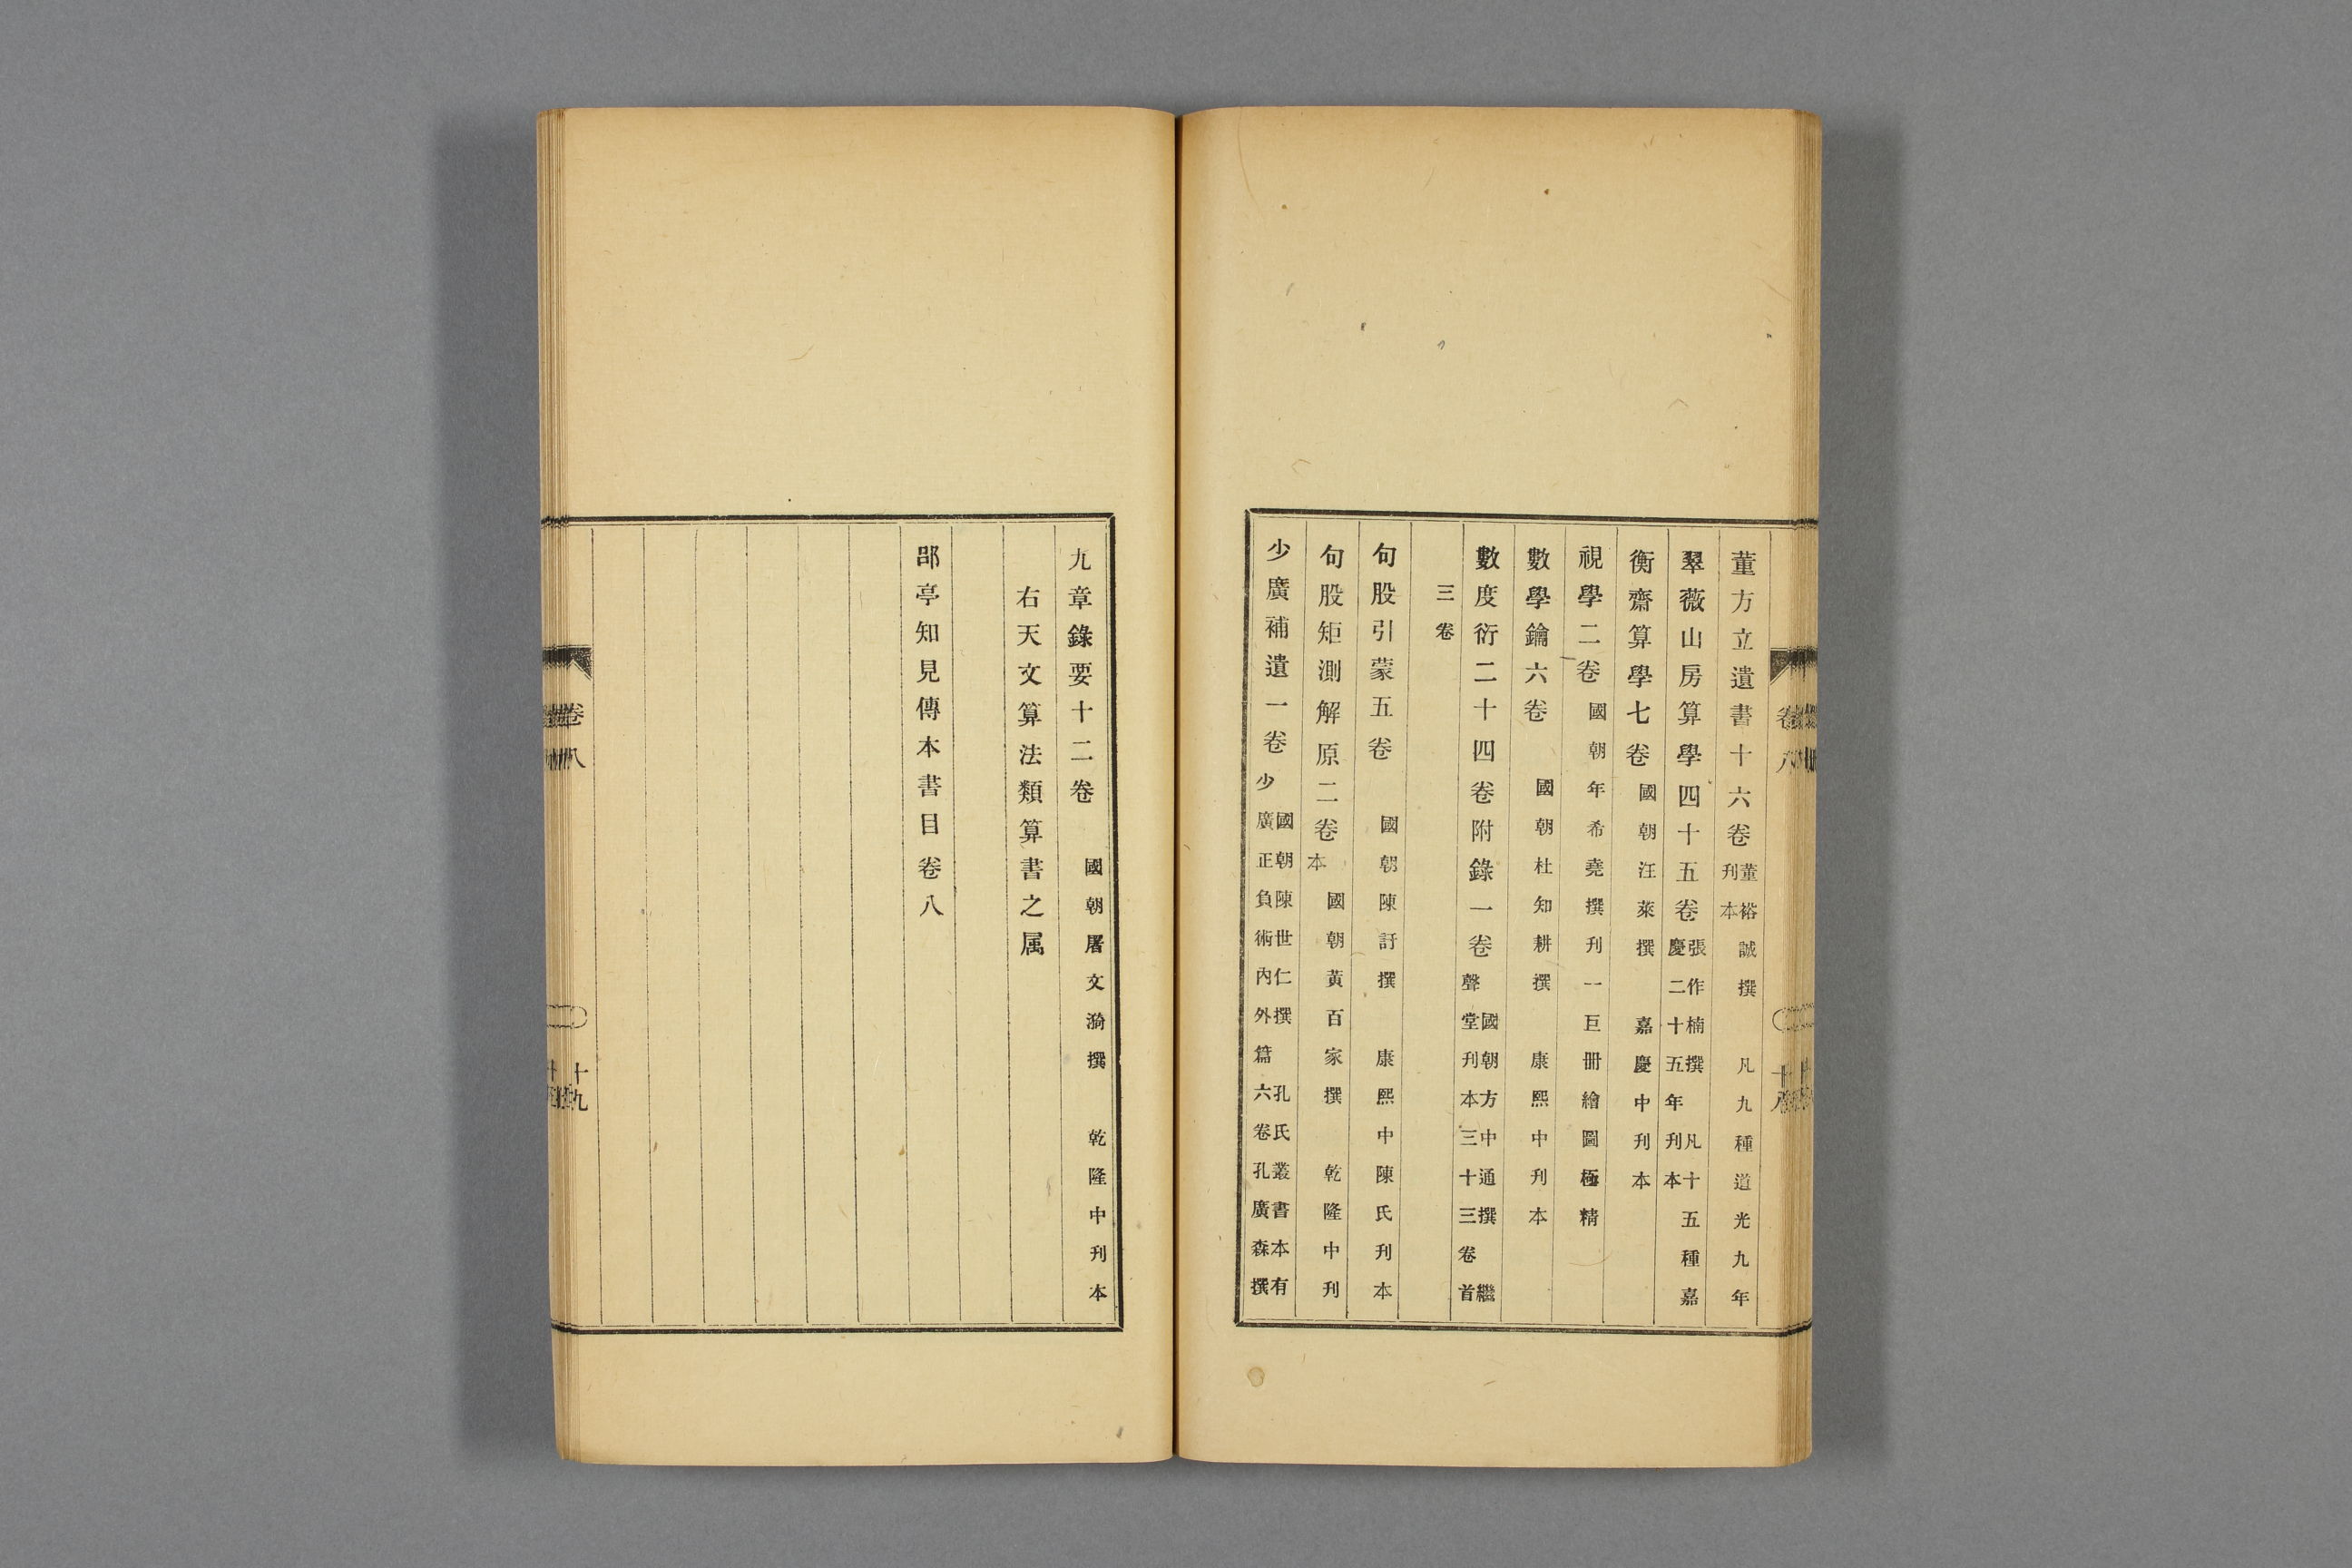 董方立遺書十六卷 董裕誠撰 凡九種道光九年刊本
翠薇山房算學四十五卷 張作楠撰 凡十五種嘉慶二十五年刊本
衡齋算學七卷 國朝汪萊撰 嘉慶中刊本
視學二卷 國朝年希堯撰刊一巨冊繪圖極精
數學鑰六卷 國朝杜知耕撰 康熙中刊本
數度衍二十四卷附錄一卷 國朝方中通撰 繼聲堂刊本三十三卷首
三卷
句股引蒙五卷 國朝陳訏撰 康熙中陳氏刊本
句股矩測解原二卷 國朝黃百家撰 乾隆中刊本
少廣補遺一卷 國朝陳世仁撰 孔氏叢書本有少廣正負術內外篇六卷孔廣森撰
卷八
十八
九章錄要十二卷 國朝屠文漪撰 乾隆中刊本
右天文算法類算書之属
郘亭知見傳本書目卷八
卷八
十九